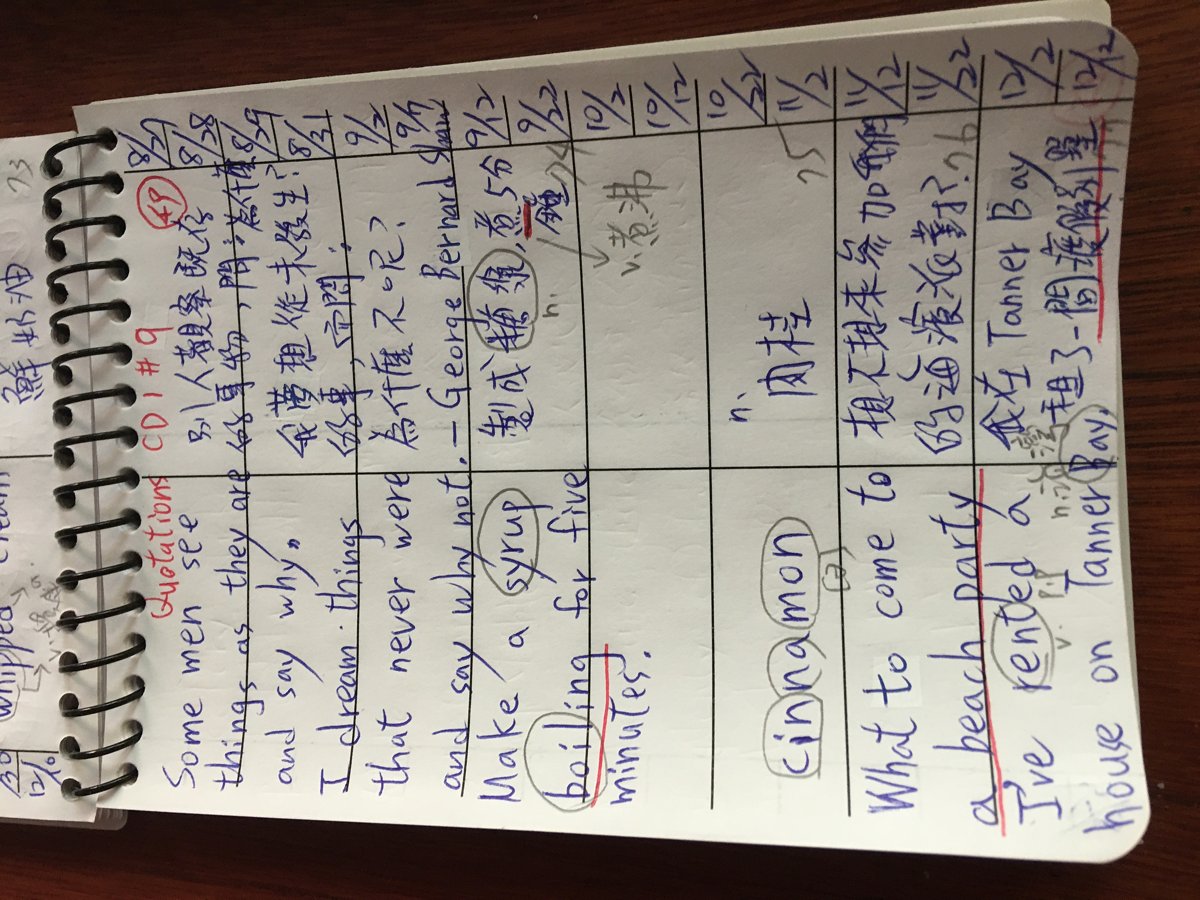 Quotations CD1 #9 49
Some men see
things as they are
and say why。
I dream things
that never were
and say why not.
別人觀察既存
的事物,問:為什麼
我夢想從未發生
的事,而問:
為什麼不呢?
— George Bernard Shaw
Make a syrup
boiling for five
minutes.
製成糖漿,煮5分
鐘 74
n.
v. 煮沸
cinnamon
[ə]
n.
肉桂
75
What to come to
a beach party
想不想來參加我們
的海濱派對? 76
I've rented a
v. 租
house on Tanner Bay.
n. 海灣
我在 Tanner Bay
租了一間渡假別墅
77
8/27
8/28
8/29
8/31
9/2
9/7
9/12
9/22
10/2
10/12
10/22
11/2
11/12
11/22
12/2
12/12
鮮奶油
73
whipped cream
12/6